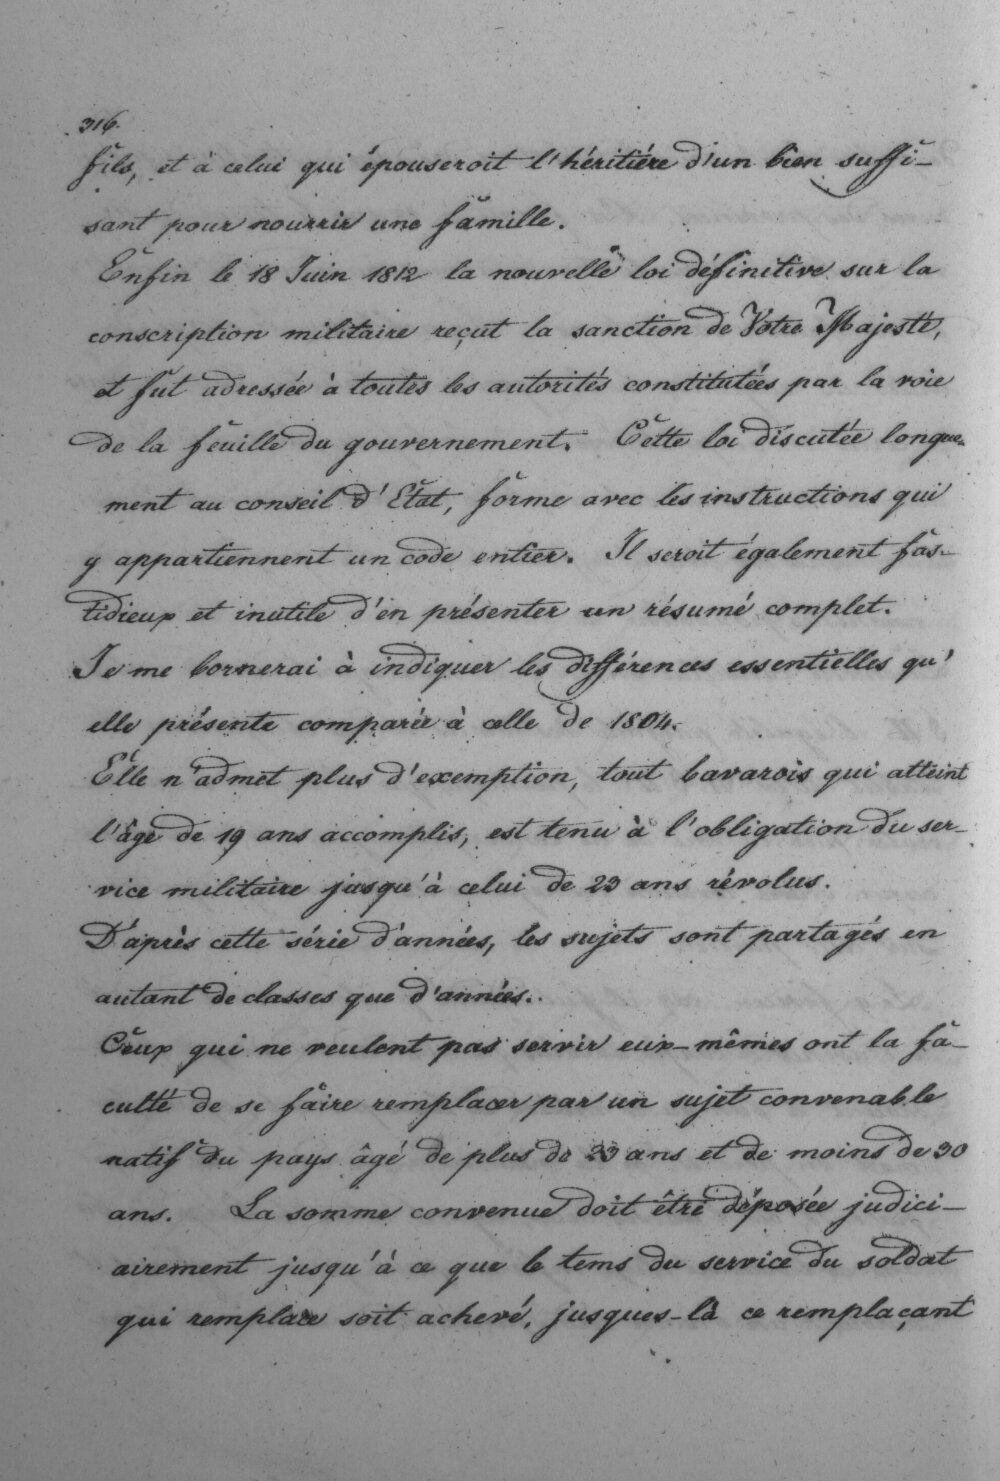 316.
fils, et à celui qui épouseroit l'héritiére d'un bien suffi-
sant pour nourrir une famille.
Enfin le 18 Juin 1812 la nouvelle loi définitive sur la
conscription militaire reçut la sanction de Votre Majesté,
et fut adressée à toutes les autorités constitutées par la voie
de la feuille du gouvernement. Cette loi discutée longue-
ment au conseil d'Etat, forme avec les instructions qui
y appartiennent un code entier. Il seroit également fas-
tidieux et inutile d'en présenter un résumé complet.
Je me bornerai à indiquer les différences essentielles qu'
elle présente comparée à celle de 1804.
Elle n'admet plus d'exemption, tout bavarois qui atteint
l'âge de 19 ans accomplis, est tenu à l'obligation du ser-
vice militaire jusqu'à celui de 23 ans révolus.
D'après cette série d'années, les sujets sont partagés en
autant de classes que d'années.
Ceux qui ne veulent pas servir eux-mêmes ont la fa-
culté de se faire remplacer par un sujet convenable
natif du pays âgé de plus de 23 ans et de moins de 30
ans. La somme convenue doit être déposée judici-
airement jusqu'à ce que le tems du service du soldat
qui remplace soit achevé, jusques-là ce remplaçant